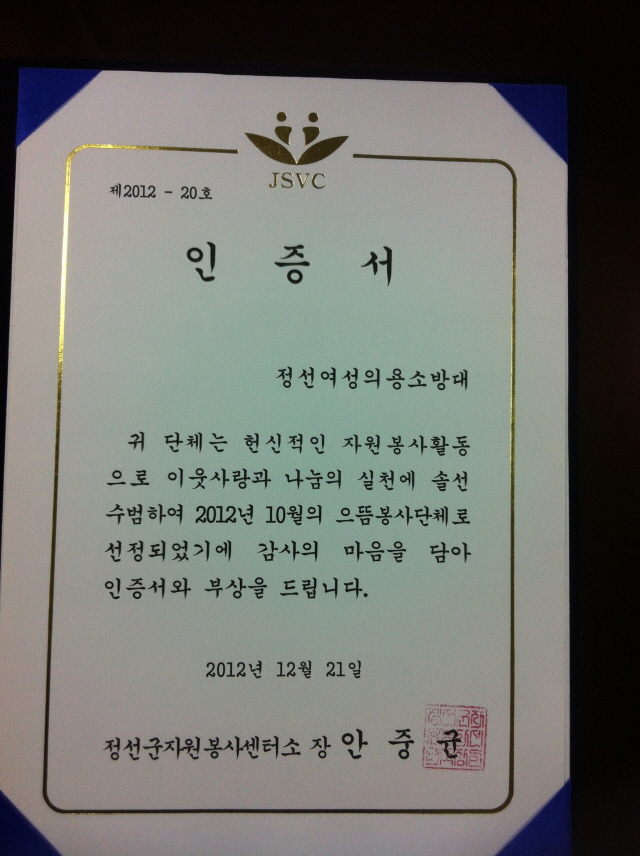 JSVC
제2012 - 20호
인 증 서
정선여성의용소방대
귀 단체는 헌신적인 자원봉사활동
으로 이웃사랑과 나눔의 실천에 솔선
수범하여 2012년 10월의 으뜸봉사단체로
선정되었기에 감사의 마음을 담아
인증서와 부상을 드립니다.
2012년 12월 21일
정선군자원봉사센터소장 안 중 균